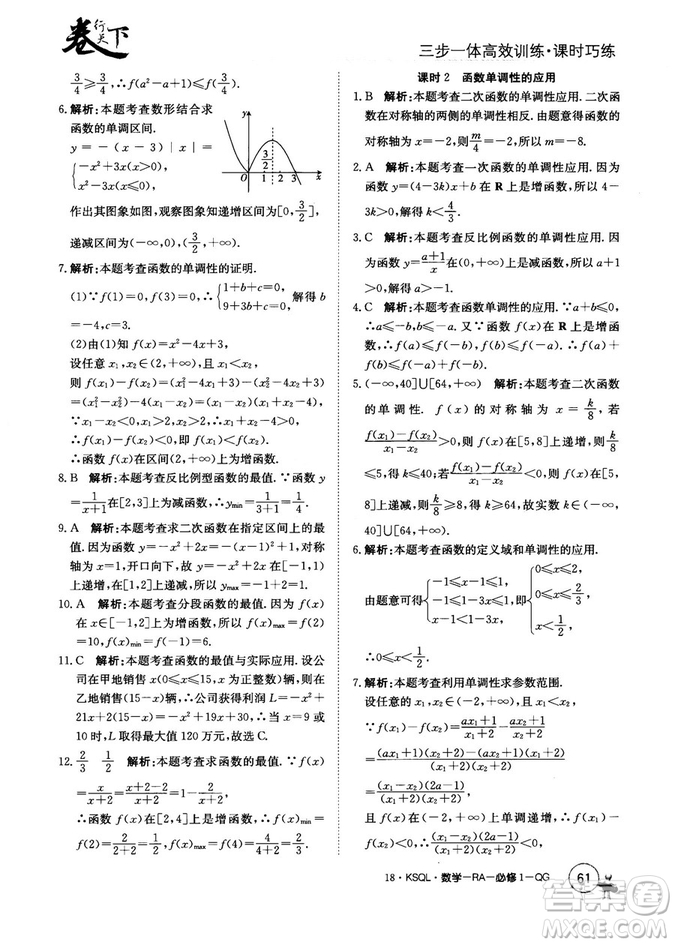 卷行天下
三步一体高效训练·课时巧练
3/4≥3/4, ∴f(a²-a+1)≤f(3/4).
6. 解析:本题考查数形结合求
函数的单调区间.
y=-(x-3)|x|=
{-x²+3x(x>0),
x²-3x(x≤0).
3/2
O 1 2 3 x
作出其图象如图,观察图象知递增区间为[0,3/2],
递减区间为(-∞,0),(3/2,+∞).
7. 解析:本题考查函数的单调性的证明.
(1)∵f(1)=0,f(3)=0,∴{1+b+c=0, 9+3b+c=0, 解得b
=-4,c=3.
(2)由(1)知f(x)=x²-4x+3,
设任意x₁,x₂∈(2,+∞),且x₁<x₂,
则f(x₁)-f(x₂)=(x₁²-4x₁+3)-(x₂²-4x₂+3)
=(x₁²-x₂²)-4(x₁-x₂)=(x₁-x₂)(x₁+x₂-4).
∵x₁-x₂<0,x₁+x₂-4>0,∴f(x₁)<f(x₂).
∴函数f(x)在区间(2,+∞)上递增.
8. B 解析:本题考查反比例型函数的最值.函数y
=1/(x+1)在[2,3]上为减函数,∴ymin=1/(3+1)=1/4.
9. A 解析:本题考查求二次函数在指定区间上的最
值.因为函数y=-x²+2x=-(x-1)²+1,对称
轴为x=1,开口向下,故f(x)=-x²+2x在[0,1]
上递增,在[1,2]上递减,所以ymax=1.
10. A 解析:本题考查分段函数的最值.∵f(x)
在[-1,2]上单调递增,∴f(x)的最大值为f(2)
=10,最小值为f(-1)=6.
11. C 解析:本题考查函数的最值与实际应用.设公
司在甲地销售x辆(0≤x≤15,x为正整数),则在
乙地销售(15-x)辆,∴公司获得利润L=-x²+
21x+2(15-x)=-x²+19x+30.∴当x=9或
10时,L取得最大值120万元,故选C.
12. 2/3 1/2 解析:本题考查求函数的最值.∵f(x)
=x/(x+2)=(x+2-2)/(x+2)=-2/(x+2)+1,
∴函数f(x)在[2,4]上是增函数,∴f(x)min
=f(2)=2/(2+2)=1/2,f(x)max=f(4)=4/(4+2)=2/3.
课时2 函数单调性的应用
1. B 解析:本题考查二次函数的单调性.二次函
数在对称轴的两侧的单调性相反.由题意得函数的
对称轴为x=-2,则m/4=-2,所以m=-8.
2. A 解析:本题考查一次函数的单调性.因为
函数f(x)=(4-3k)x+2在R上是增函数,所以4
-3k>0,所以k<4/3.
3. C 解析:本题考查反比例函数的单调性.因为
函数f(x)=(a+1)/x在(-∞,0)上是减函数,所以a+1
>0,所以a>-1.
4. C 解析:本题考查函数单调性的应用.∵a+b≤0,
∴a≤-b,b≤-a.又∵函数f(x)在R上是增函
数,∴f(a)≤f(-b),f(b)≤f(-a).∴f(a)+
f(b)≤f(-a)+f(-b).
5. (-∞,40]∪[64,+∞) 解析:本题考查二次函数
的单调性.f(x)的对称轴为x=k/8,若
(f(x₁)-f(x₂))/(x₁-x₂)>0,则f(x)在[5,8]上递增,k/8
≤5,得k≤40;若(f(x₁)-f(x₂))/(x₁-x₂)<0,则f(x)在[5,
8]上递减,k/8≥8,得k≥64,故k的取值范围为k≤
40或k≥64.
6. 解析:本题考查函数的定义域和单调性的应用.
由题意可得{-1≤x-1≤1, -1≤1-3x≤1, x-1<1-3x ⇒{0≤x≤2, 0≤x≤2/3, x<1/2,
∴0≤x<1/2.
7. 解析:本题考查利用单调性求参数范围.
设任意的x₁,x₂∈(-2,+∞),且x₁<x₂,
∵f(x₁)-f(x₂)=(ax₁+1)/(x₁+2)-(ax₂+1)/(x₂+2)
=(x₁-x₂)(2a-1)/((x₁+2)(x₂+2)),
且f(x)在(-2,+∞)上单调递增,∴f(x₁)-
f(x₂)<0.∴(x₁-x₂)(2a-1)/((x₁+2)(x₂+2))<0,
18·KSQL·数学-RA-必修1-QG
61